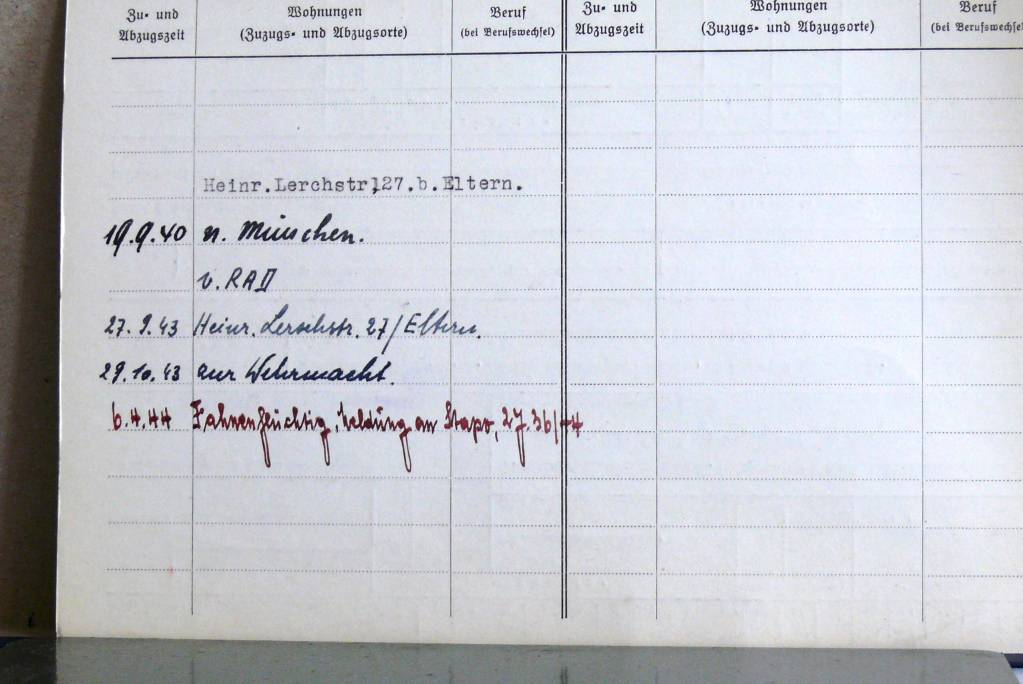 Zu- und Abzugszeit
Wohnungen (Zuzugs- und Abzugsorte)
Beruf (bei Berufswechsel)
Zu- und Abzugszeit
Wohnungen (Zuzugs- und Abzugsorte)
Beruf (bei Berufswechsel
Heinr.Lerchstr,127.b.Eltern.
19.9.40 n. München.
v. RAD
27.9.43 Heinr. Lerschstr. 27/Eltern.
29.10.43 zur Wehrmacht.
6.4.44 Fahnenflüchtig, Meldung an Stapo, 27.36/44